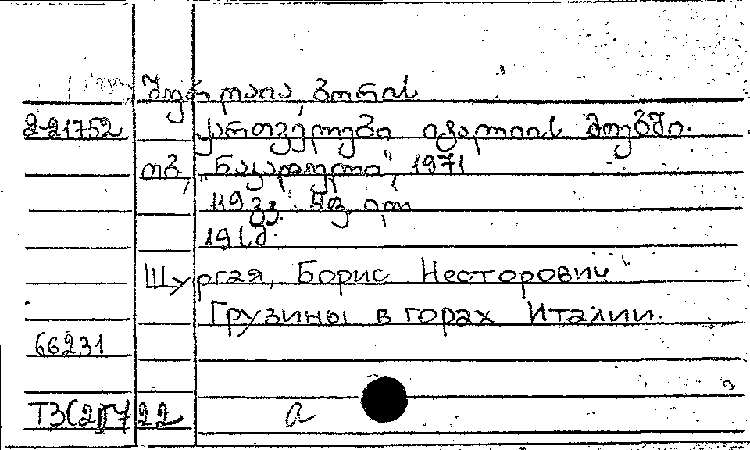 შურღაია, ბორის
2-21752 ქართველები იტალიის მთებში.
თბ, „ნაკადული", 1971
119 გვ.
Шургая, Борис Несторович
Грузины в горах Италии.
66231
22 a